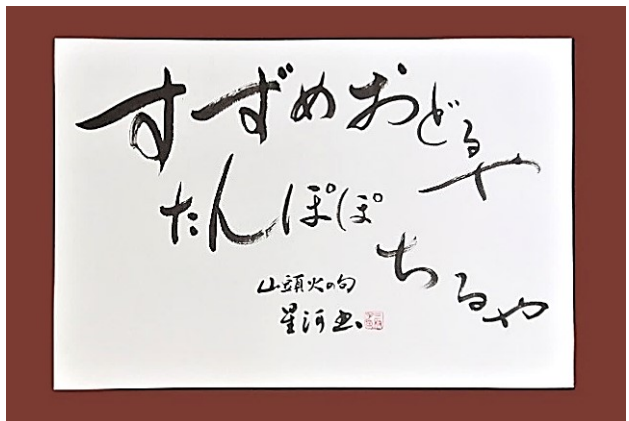 すずめおどるや
たんぽぽ
ちるや
山頭火の句
星河書